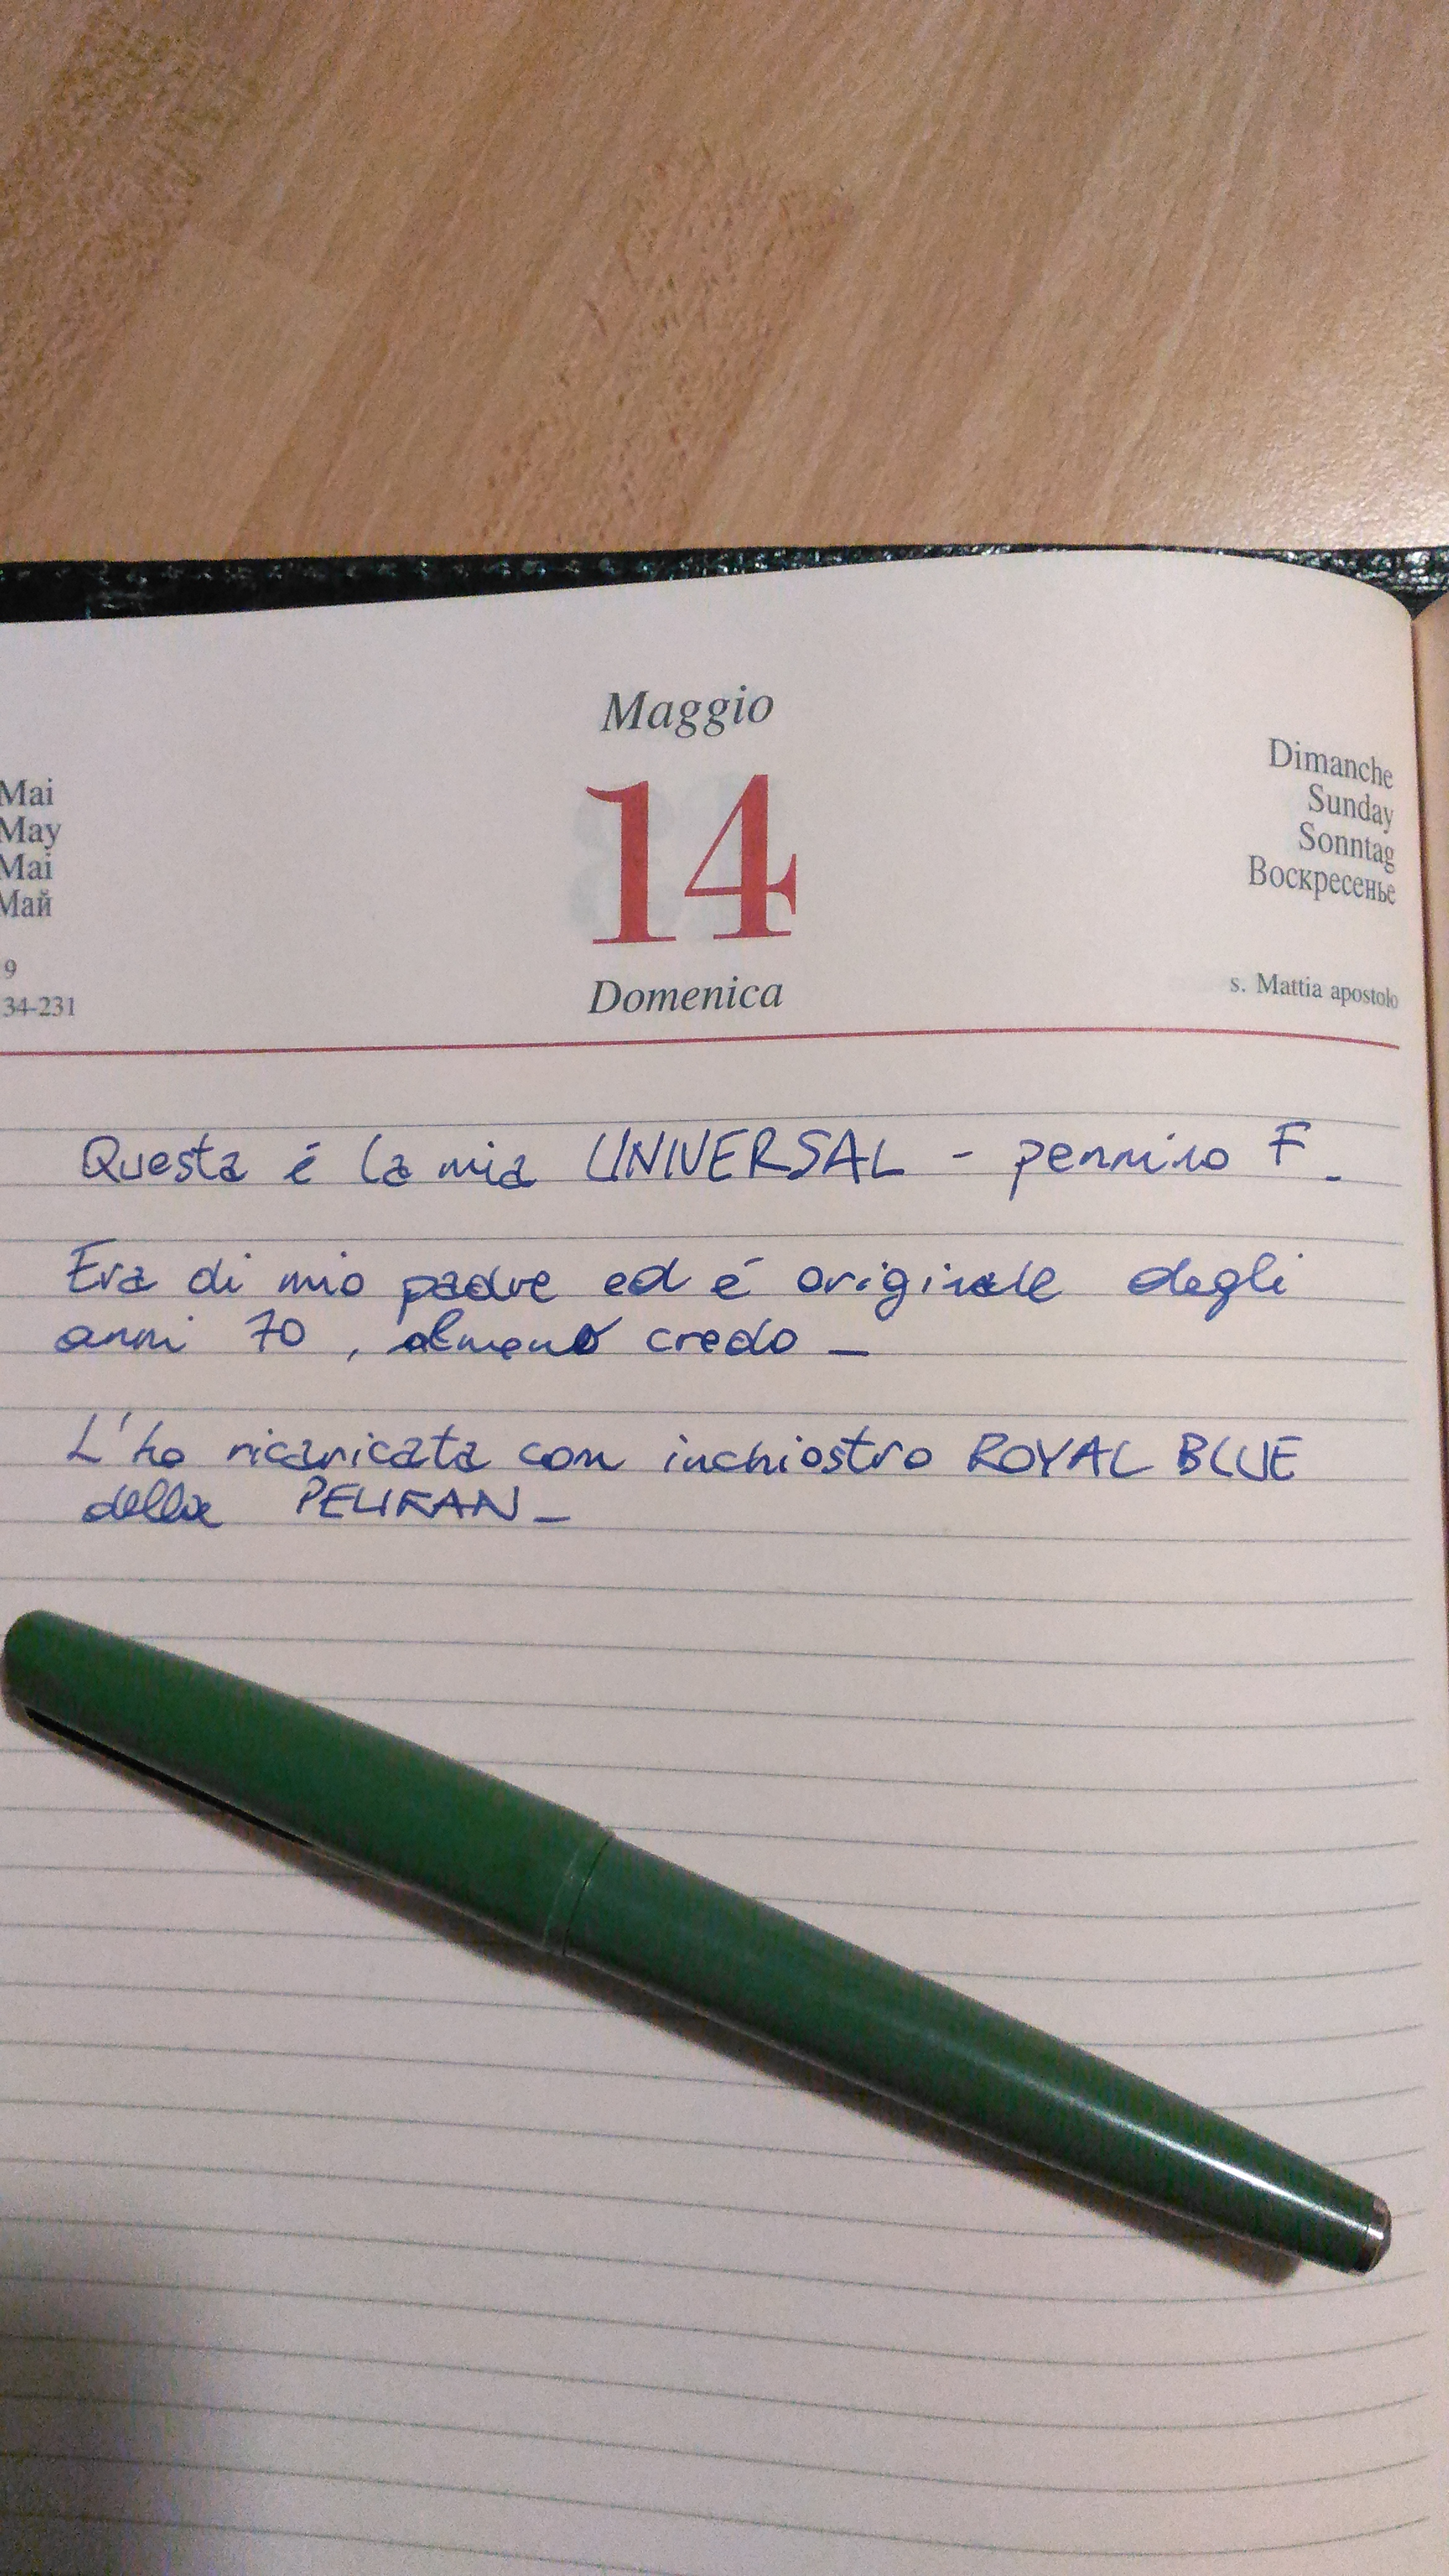 Maggio
Mai
May
Mai
Май
14
Dimanche
Sunday
Sonntag
Воскресенье
9
34-231
Domenica
s. Mattia apostolo
Questa é la mia UNIVERSAL - pennino F_
Era di mio padre ed é originale degli
anni 70, almeno credo _
L'ho ricaricata con inchiostro ROYAL BLUE
della PELIKAN_